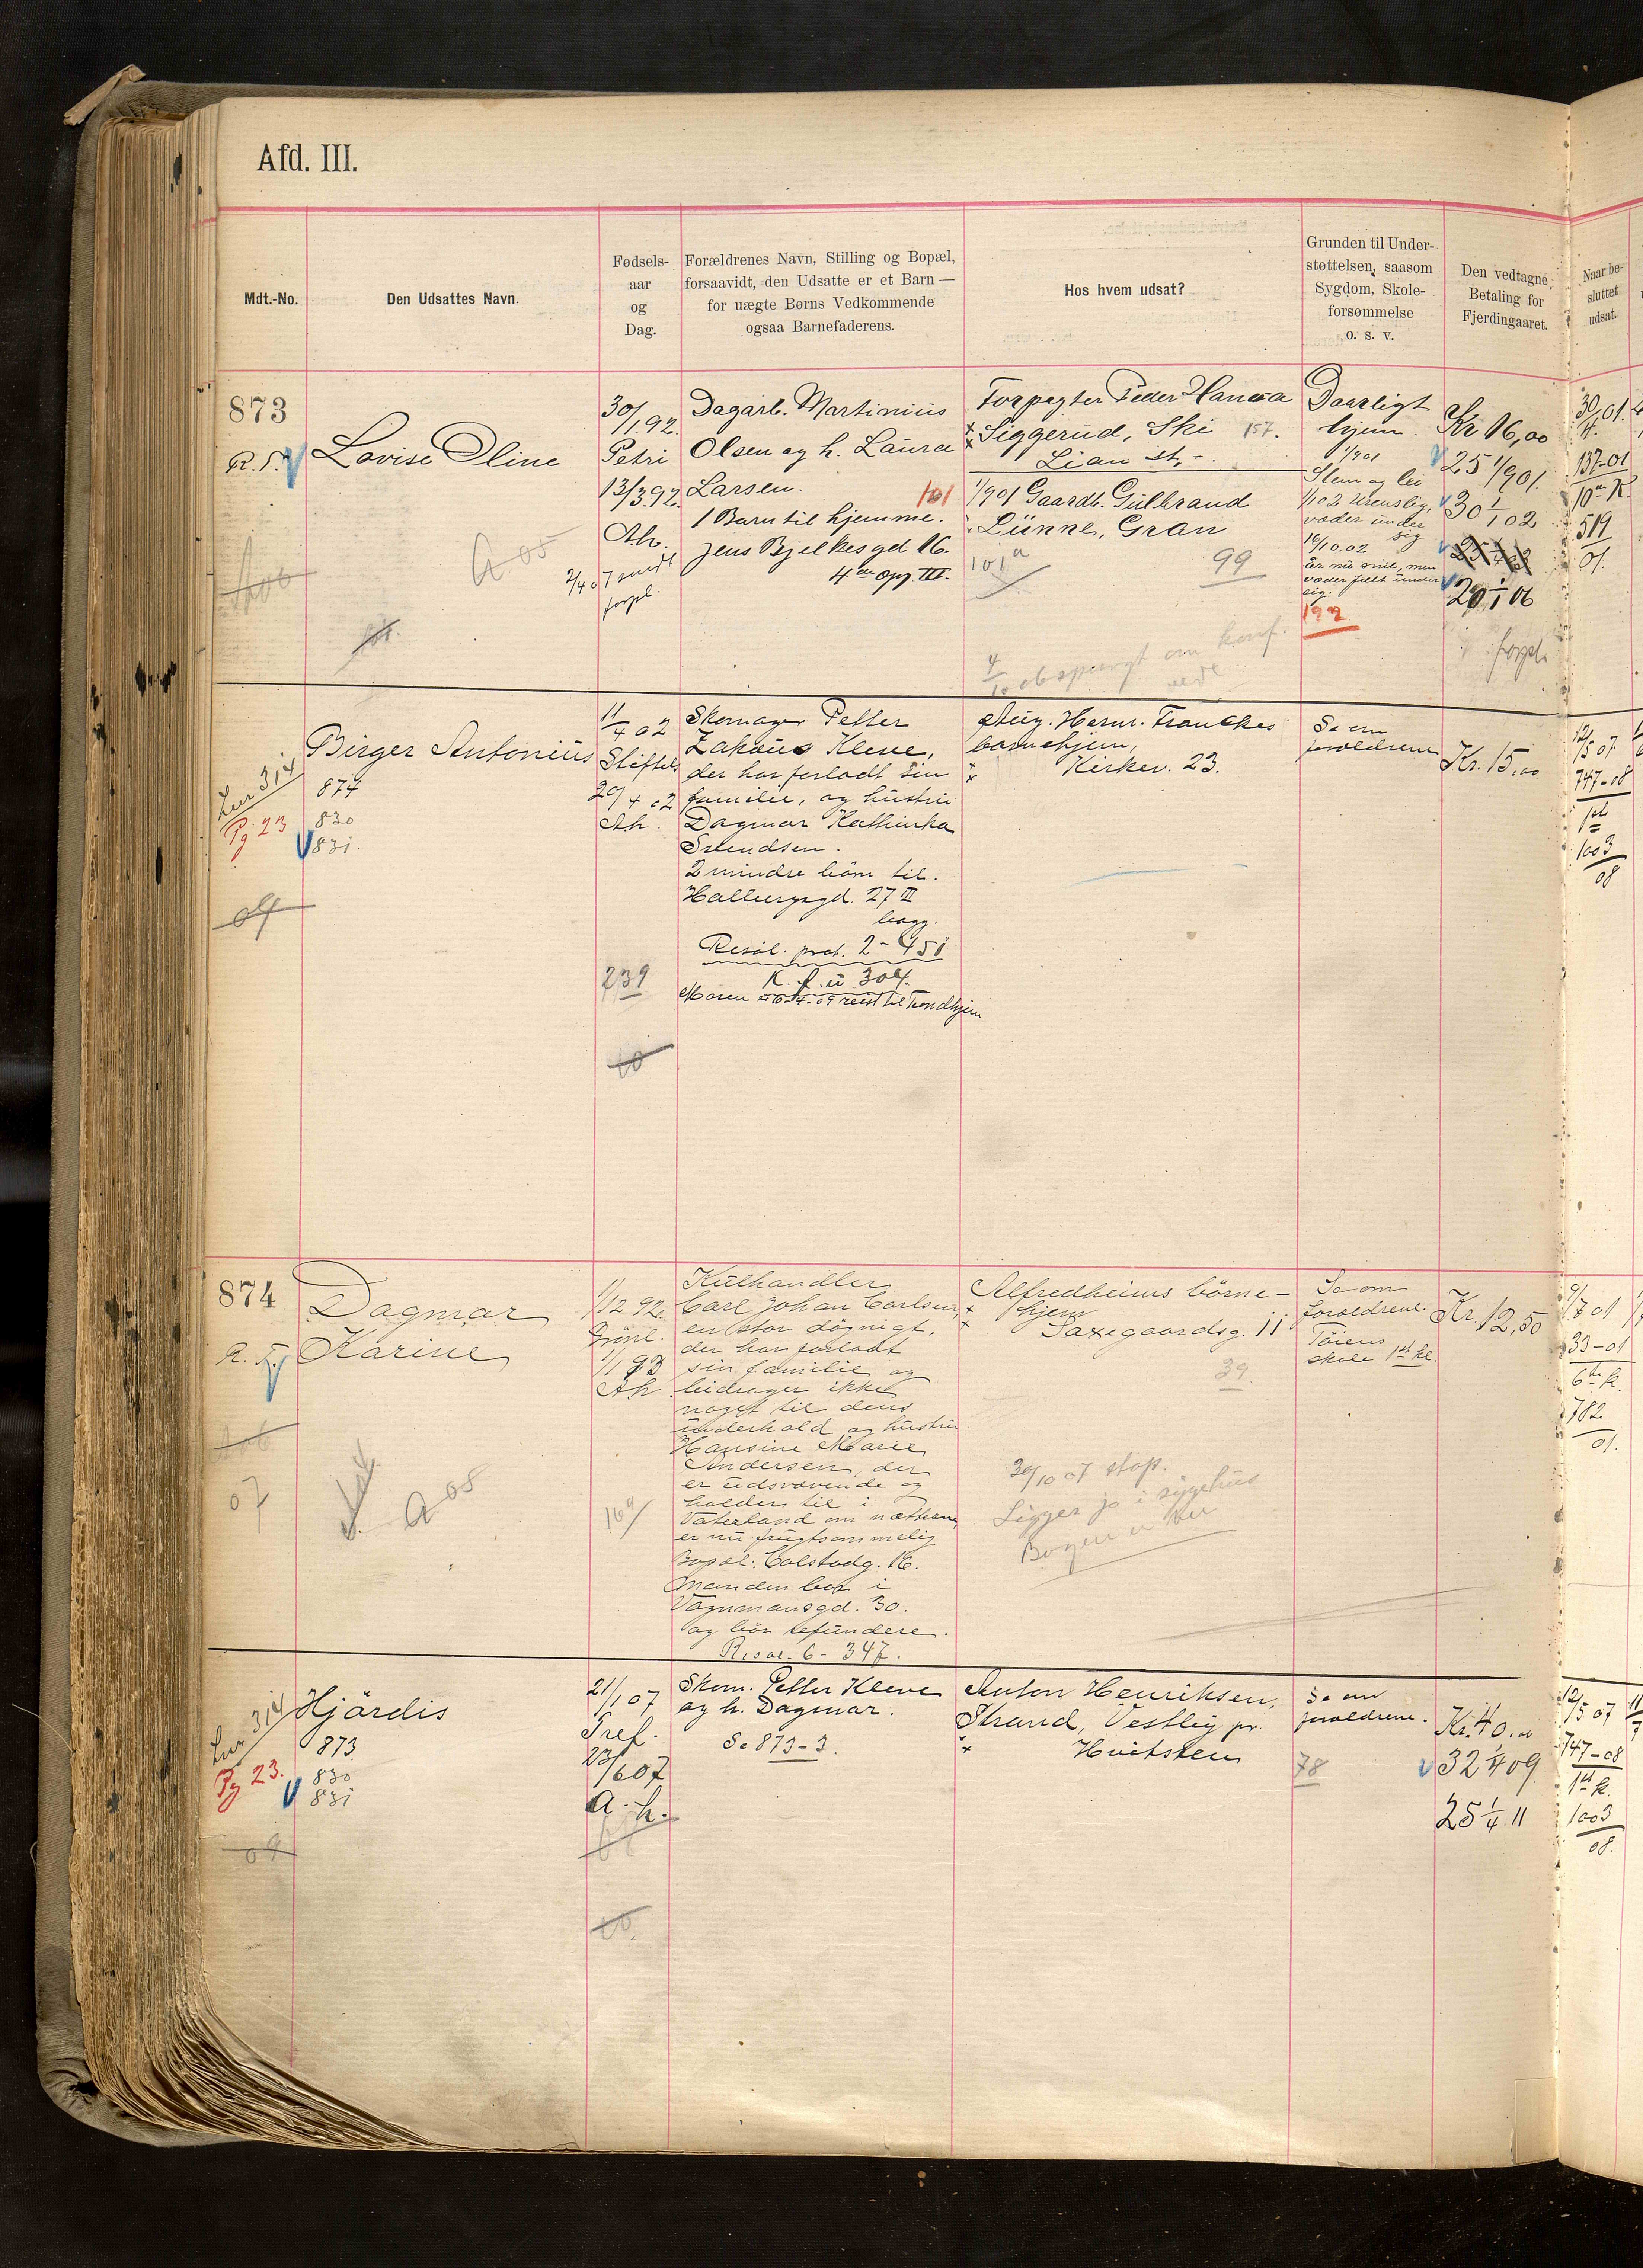 Afd. III.
Mdt.-No.
Den Udsattes Navn.
Fødsels-
aar
og
Dag.
Forældrenes Navn, Stilling og Bopæl,
forsaavidt, den Udsatte er et Barn —
for uægte Børns Vedkommende
ogsaa Barnefaderens.
Hos hvem udsat?
Grunden til Under-
støttelsen, saasom
Sygdom, Skole-
forsømmelse
o. s. v.
Den vedtagne
Betaling for
Fjerdingaaret.
Naar be-
sluttet
udsat.
873
Lovise Oline
30/1 92.
Petri
13/3 92.
Ah.
2/4 07
forpl.
Dagarb. Martinius
Olsen og h. Laura
Larsen.
101
1 Barn til hjemme.
Jens Bjelkesgd 16.
4de opg III.
Forpagter Peder Hansa
Siggerud, Ski 157.
Lian st.
1/901 Gaardb. Gulbrand
Lünne, Gran
101a
99
Daarligt
hjem
1/901
Slem og lei
1/1 02 Urenslig,
væder under
sig
16/10.02
er nu snil, men
væder fælt under
sig.
192
Kr 16,00
25 1/901.
30 1/1 02
20 1/1 06
forpl.
30/4 01.
137-01
10de K.
519
01.
Birger Antonius
874
830
831.
Pg 23
04
11/4 02
Stiftels
29/4 02
Ah.
239
Skomager Petter
Zakæus Kleve,
der har forladt sin
familie, og hustru
Dagmar Kathinka
Svendsen.
2 mindre børn til.
Hallingsgd. 27 III
bagg.
Resol. prot. 2 - 451
K. f. u 304.
Moren 26-4-09 reist til Trondhjem
Aug. Herm. Franckes
barnehjem,
Kirkev. 23.
Se om
forældrene
Kr. 15,00
12/5 07
747-08
1003
08
874
Dagmar
Karine
07
1/12 92.
Grönl.
1/1 93
Ah
169/
Kulhandler
Carl Johan Carlsen,
en stor døgnigt,
der har forladt
sin familie og
bidrager ikke
noget til dens
underhold og hustru
Hansine Marie
Andersen, der
er udsvævende og
holder til i
Vaterland om nætterne,
er nu frugtsommelig
Bopæl: Calstadg. 16.
Manden bor i
Vognmansgd. 30.
og bör refundere.
Resol. 6 - 347.
Alfredheims börne-
hjem
Saxegaardsg. 11
39.
30/10 07 stop.
Ligger jo i sygehus
Bogen
Se om
forældrene.
Töiens
skole 1ste kl.
Kr. 12,50
9/7 01
33-01
6te k.
782
01.
Hjördis
873
830
831
Pg 23.
21/1 07
Tref.
23/6 07
A. h.
Skom. Petter Kleve
og h. Dagmar.
Se 873-3.
Anton Henriksen,
Strand, Vestby pr.
Hvitsten
78
Se om
forældrene.
Kr. 40.00
32 1/4 09
25 1/4 11
12/5 07
747-08
1ste k.
1003
08.